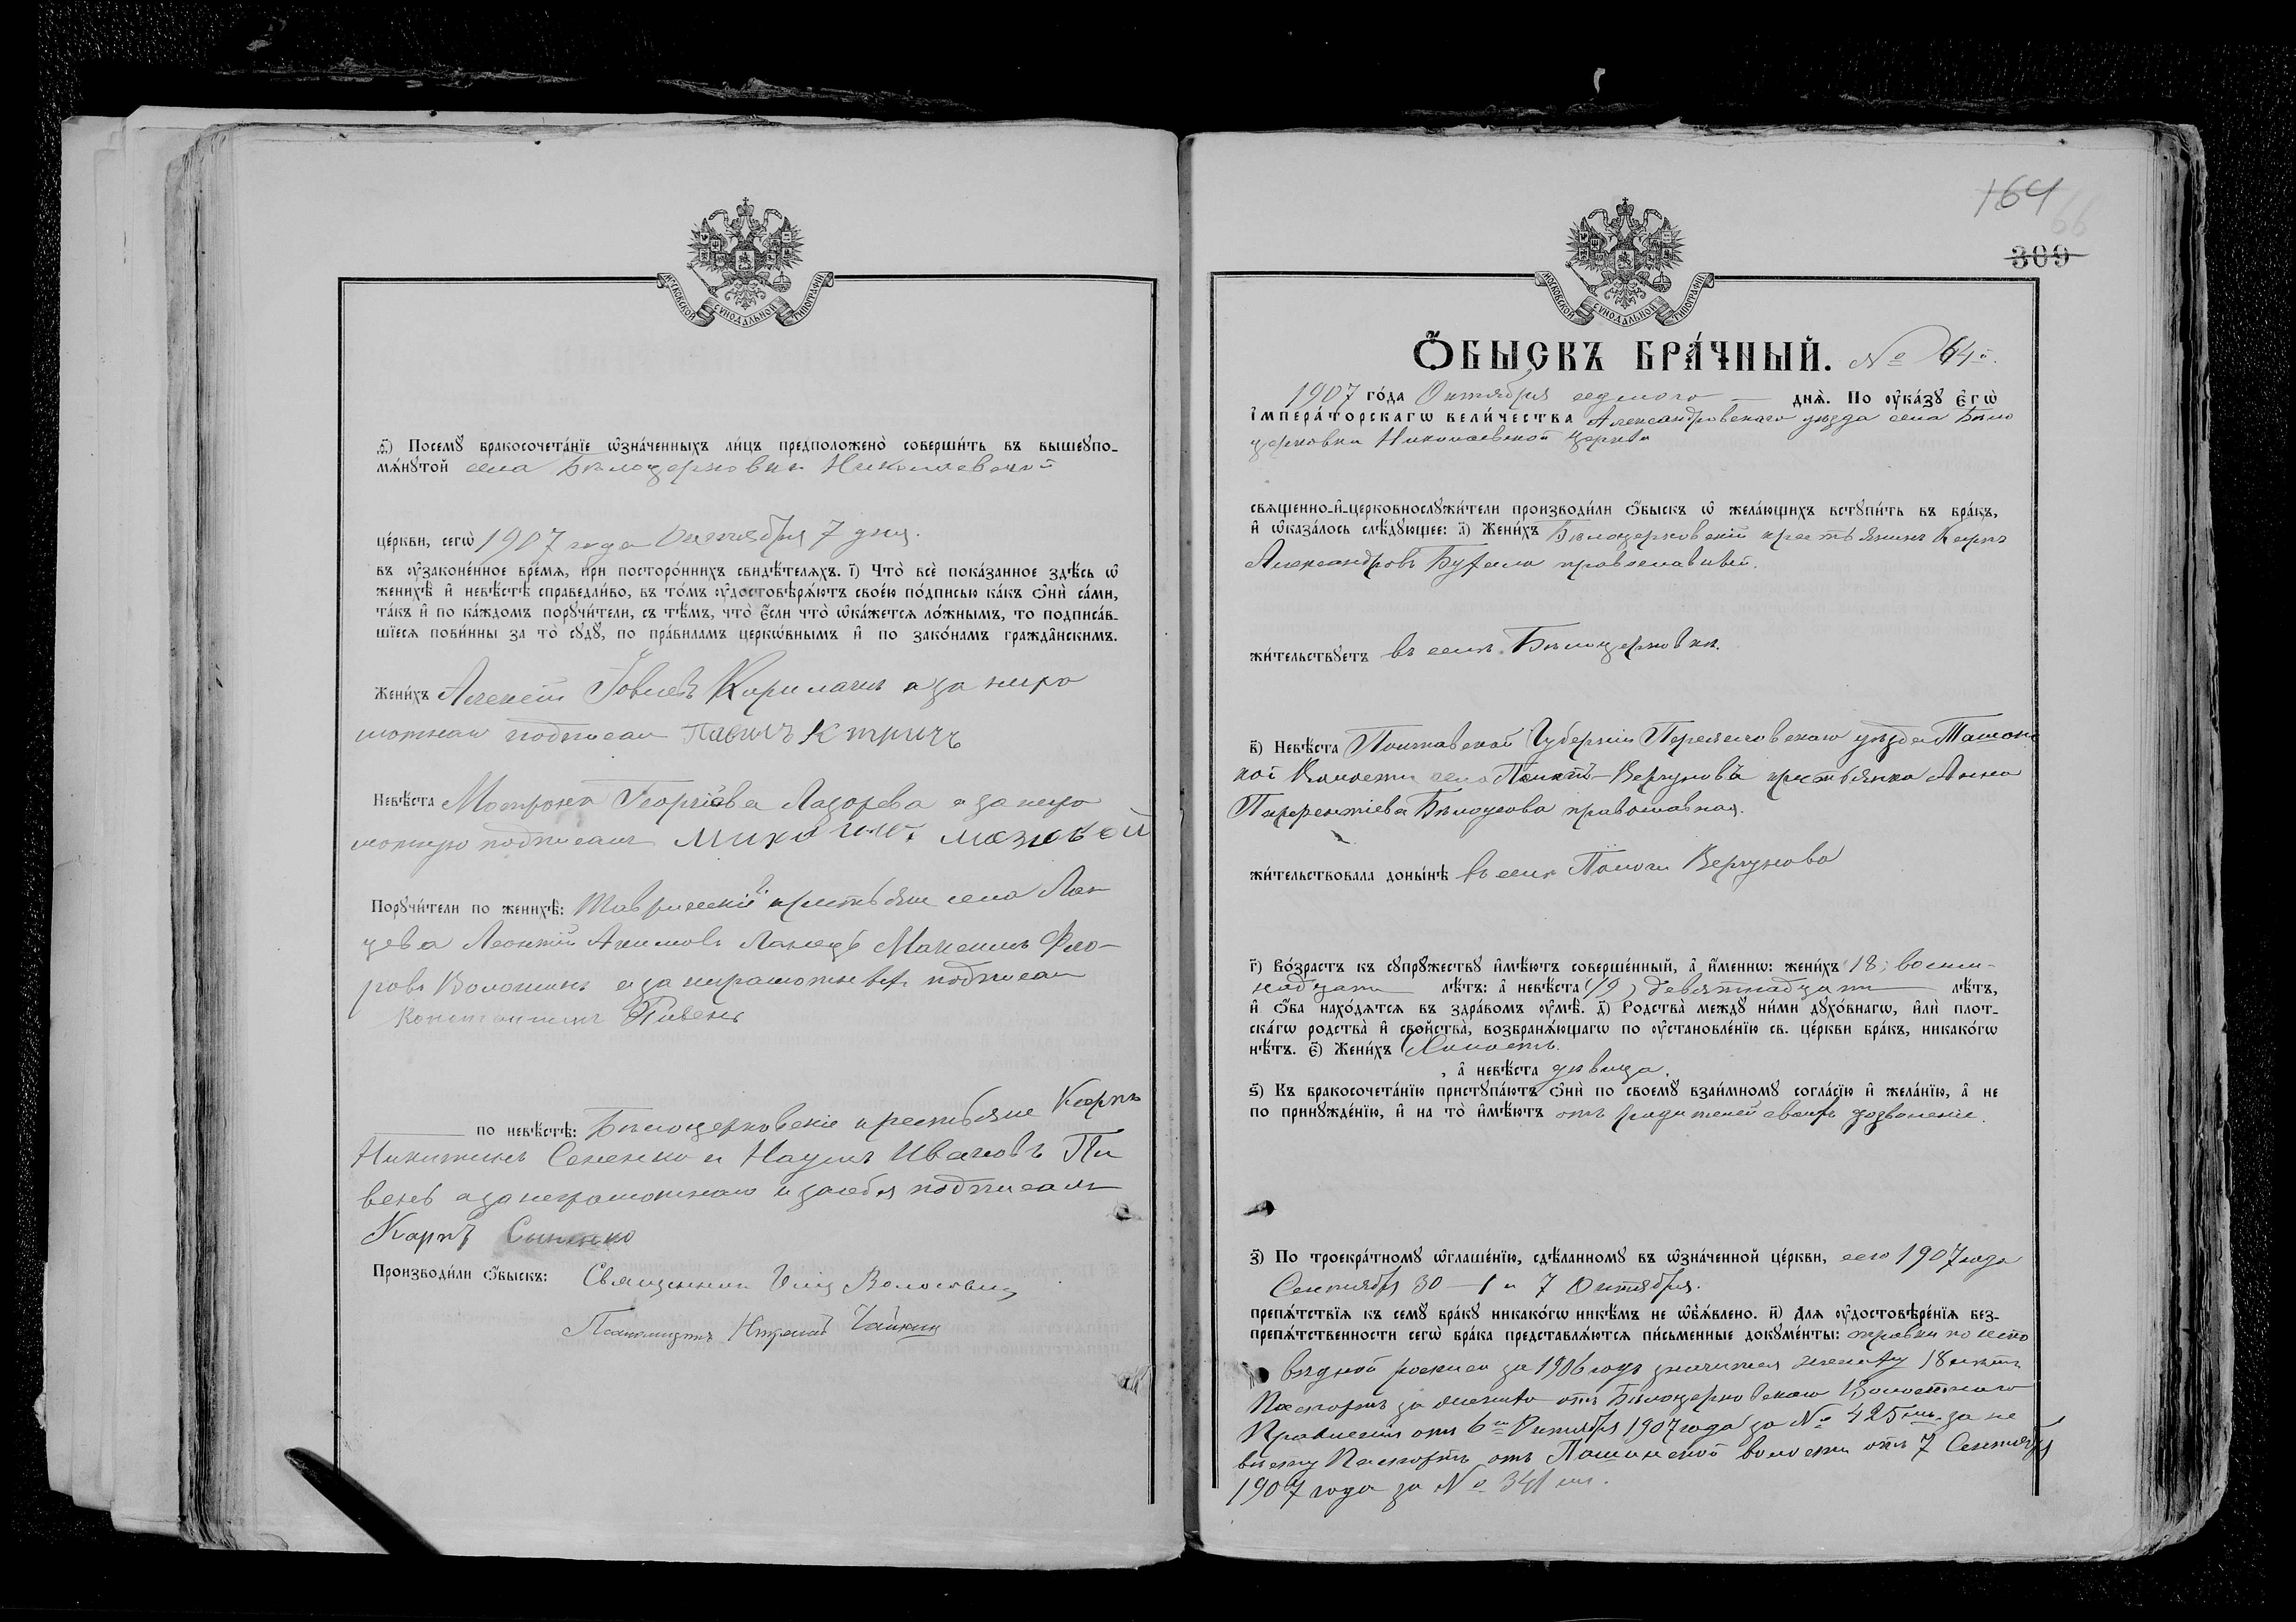 МОСКОВСКОЙ СѴНОДАЛЬНОЙ ТИПОГРАФІИ
ѳ҃) Посемꙋ̀ бракосочета́нїе ѡ҆зна́ченныхъ ли́цъ предположено̀ соверши́ть въ вышеꙋпо-
мѧ́нꙋтой села Бѣлоцерковки Николаевской
це́ркви, сегѡ̀ 1907 года Октября 7 дня.
въ ᲂу҆законе́нное вре́мѧ, при посторо́ннихъ свидѣ́телѧхъ. і҃) Что̀ всѐ пока́занное здѣ́сь ѡ҆
женихѣ̀ и҆ невѣ́стѣ справедли́во, въ то́мъ ᲂу҆достовѣрѧ́ютъ свое́ю по́дписью ка́къ ѻ҆нѝ са́ми,
та́къ и҆ по ка́ждомъ порꙋчи́тели, съ тѣ́мъ, что̀ є҆́сли что̀ ѡ҆ка́жетсѧ ло́жнымъ, то подписа́в-
шїесѧ пови́нны за то̀ сꙋдꙋ̀, по пра́виламъ церкѡ́внымъ и҆ по зако́намъ гражда̂нскимъ.
Жени́хъ Алексей Іовлев а за негра
мотнаго подписал
Невѣ́ста Матрона Георгіева Лазорева а за негра
мотную подписалъ
Порꙋчи́тели по женихѣ̀: Таврическіе крестьяне села
Леонтій Акимовъ Максимъ Фло-
ровъ Волошинъ а за неграмотныхъ подписал
Константинъ Пивень
по невѣ́стѣ: Бѣлоцерковскіе крестьяне Карпъ
Никитинъ Сененко и Наумъ Ивановъ Пи
вень а за неграмотнаго и за себя подписалъ
Карпъ
Производи́ли ѻ҆́быскъ: Священник
Псаломщикъ
164
66
309
МОСКОВСКОЙ СѴНОДАЛЬНОЙ ТИПОГРАФІИ
Ѻ҆́БЫСКЪ БРА́ЧНЫЙ. № 64й.
1907 го́да Октября седмого днѧ̀. По ᲂу҆ка́зꙋ Є҆гѡ̀
і҆мпера́торскагѡ вели́чества Александровскаго уѣзда села Бѣло
церковки Николаевской церкви
свѧщенно-и҆-церковнослꙋжи́тели производи́ли ѻ҆́быскъ ѡ҆ жела́ющихъ вступи́ть въ бра́къ,
и҆ ѡ҆каза́лось слѣ́дꙋющее: а҃) Жени́хъ Бѣлоцерковскій крестьянинъ Карпъ
Александровъ православный.
жи́тельствꙋетъ въ селѣ Бѣлоцерковкѣ.
в҃) Невѣ́ста Полтавской Губерніи Переяславскаго уѣзда Ташан
кой Волости села крестьянка Анна
Парфентіева Бѣлоусова православная.
жи́тельствовала доны́нѣ въ селѣ
г҃) Во́зрастъ къ сꙋпрꙋ́жествꙋ и҆мѣ́ютъ соверше́нный, а҆ и҆́меннѡ: жени́хъ 18, восем-
надцать лѣ́тъ: а҆ невѣ́ста (19) девятнадцать лѣ́тъ,
и҆ ѻ҆́ба нахо́дѧтсѧ въ здра́вомъ ᲂу҆мѣ̀. д҃) Родства̀ междꙋ̀ ни́ми дꙋхо́внагѡ, и҆лѝ плот-
ска́гѡ родства̀ и҆ сво́йства̀, возбранѧ́ющагѡ по ᲂу҆становле́нїю св. це́ркви бра́къ, никако́гѡ
нѣ́тъ. є҃) Жени́хъ Холостъ.
, а҆ невѣ́ста дѣвица.
ѕ҃) Къ бракосочета́нїю пристꙋпа́ютъ ѻ҆нѝ по своемꙋ̀ взаи́мномꙋ согла́сїю и҆ жела́нїю, а҆ не
по принꙋжде́нїю, и҆ на то̀ и҆мѣ́ютъ отъ родителей своихъ дозволеніе.
з҃) По троекра́тномꙋ ѡ҆глаше́нїю, сдѣ́ланномꙋ въ ѡ҆зна́ченной це́ркви, сего 1907 года
Сентября 30 – 1 и 7 Октября.
препѧ́тствїѧ къ семꙋ̀ бра́кꙋ никако́гѡ никѣ́мъ не ѡ҆б̾ѧ́влено. и҃) Длѧ ᲂу҆достовѣре́нїѧ без-
препѧ́тственности сегѡ̀ бра́ка представлѧ́ютсѧ пи́сьменные докꙋме́нты: по испо
вѣдной росписи за 1906 годъ значится жениху 18 лѣтъ
Паспортъ за отъ Бѣлоцерковскаго Волостного
Правленія отъ 6го Октября 1907 года за № 425 за не
вѣсту Паспортъ отъ волости отъ 7 Сентября
1907 года за № 341